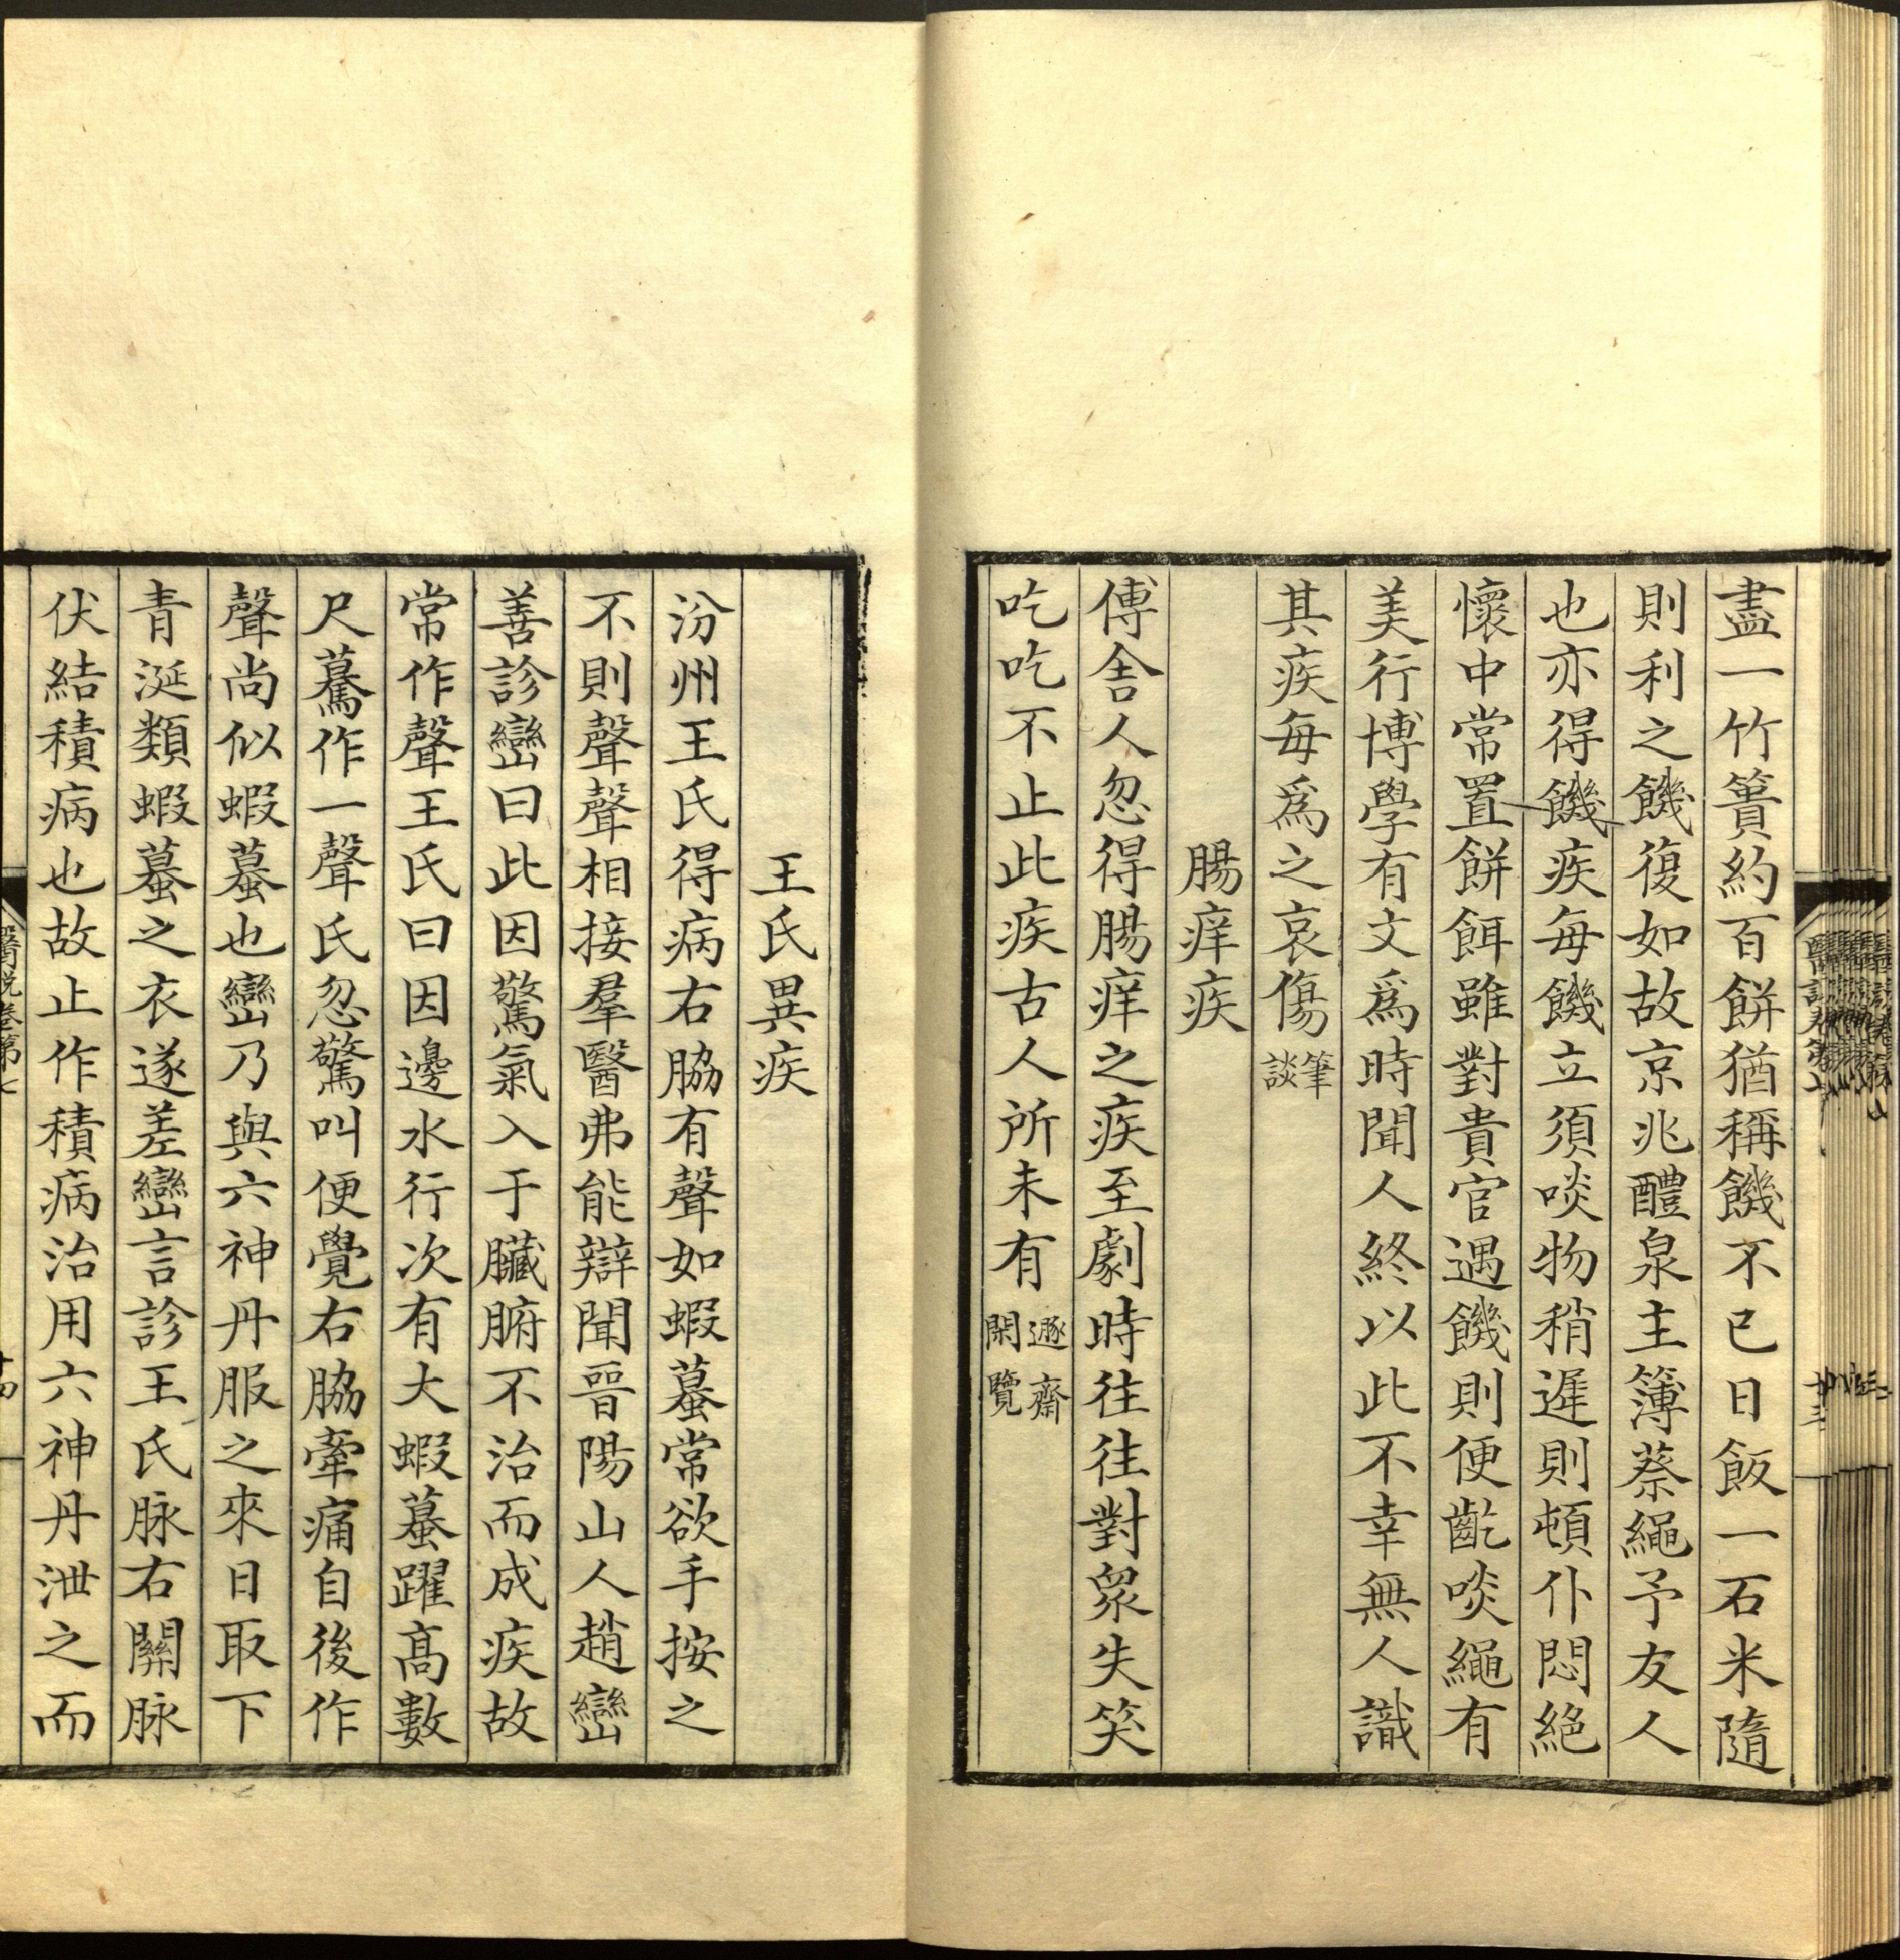 盡一竹簣約百餅猶稱饑不已日飯一石米隨
則利之饑復如故京兆醴泉主簿蔡繩予友人
也亦得饑疾每饑立須啖物稍遲則頓仆悶絕
懷中常置餅餌雖對貴官遇饑則便齕啖繩有
美行博學有文爲時聞人終以此不幸無人識
其疾每爲之哀傷筆談
腸痒疾
傅舍人忽得腸痒之疾至劇時往往對衆失笑
吃吃不止此疾古人所未有遯齋閑覽
王氏異疾
汾州王氏得病右脇有聲如蝦蟇常欲手按之
不則聲聲相接羣醫弗能辯聞晉陽山人趙巒
善診巒曰此因驚氣入于臟腑不治而成疾故
常作聲王氏曰因邊水行次有大蝦蟇躍高數
尺驀作一聲氏忽驚叫便覺右脇牽痛自後作
聲尚似蝦蟇也巒乃與六神丹服之來日取下
青涎類蝦蟇之衣遂差巒言診王氏脉右關脉
伏結積病也故止作積病治用六神丹泄之而
醫說卷第七
十四